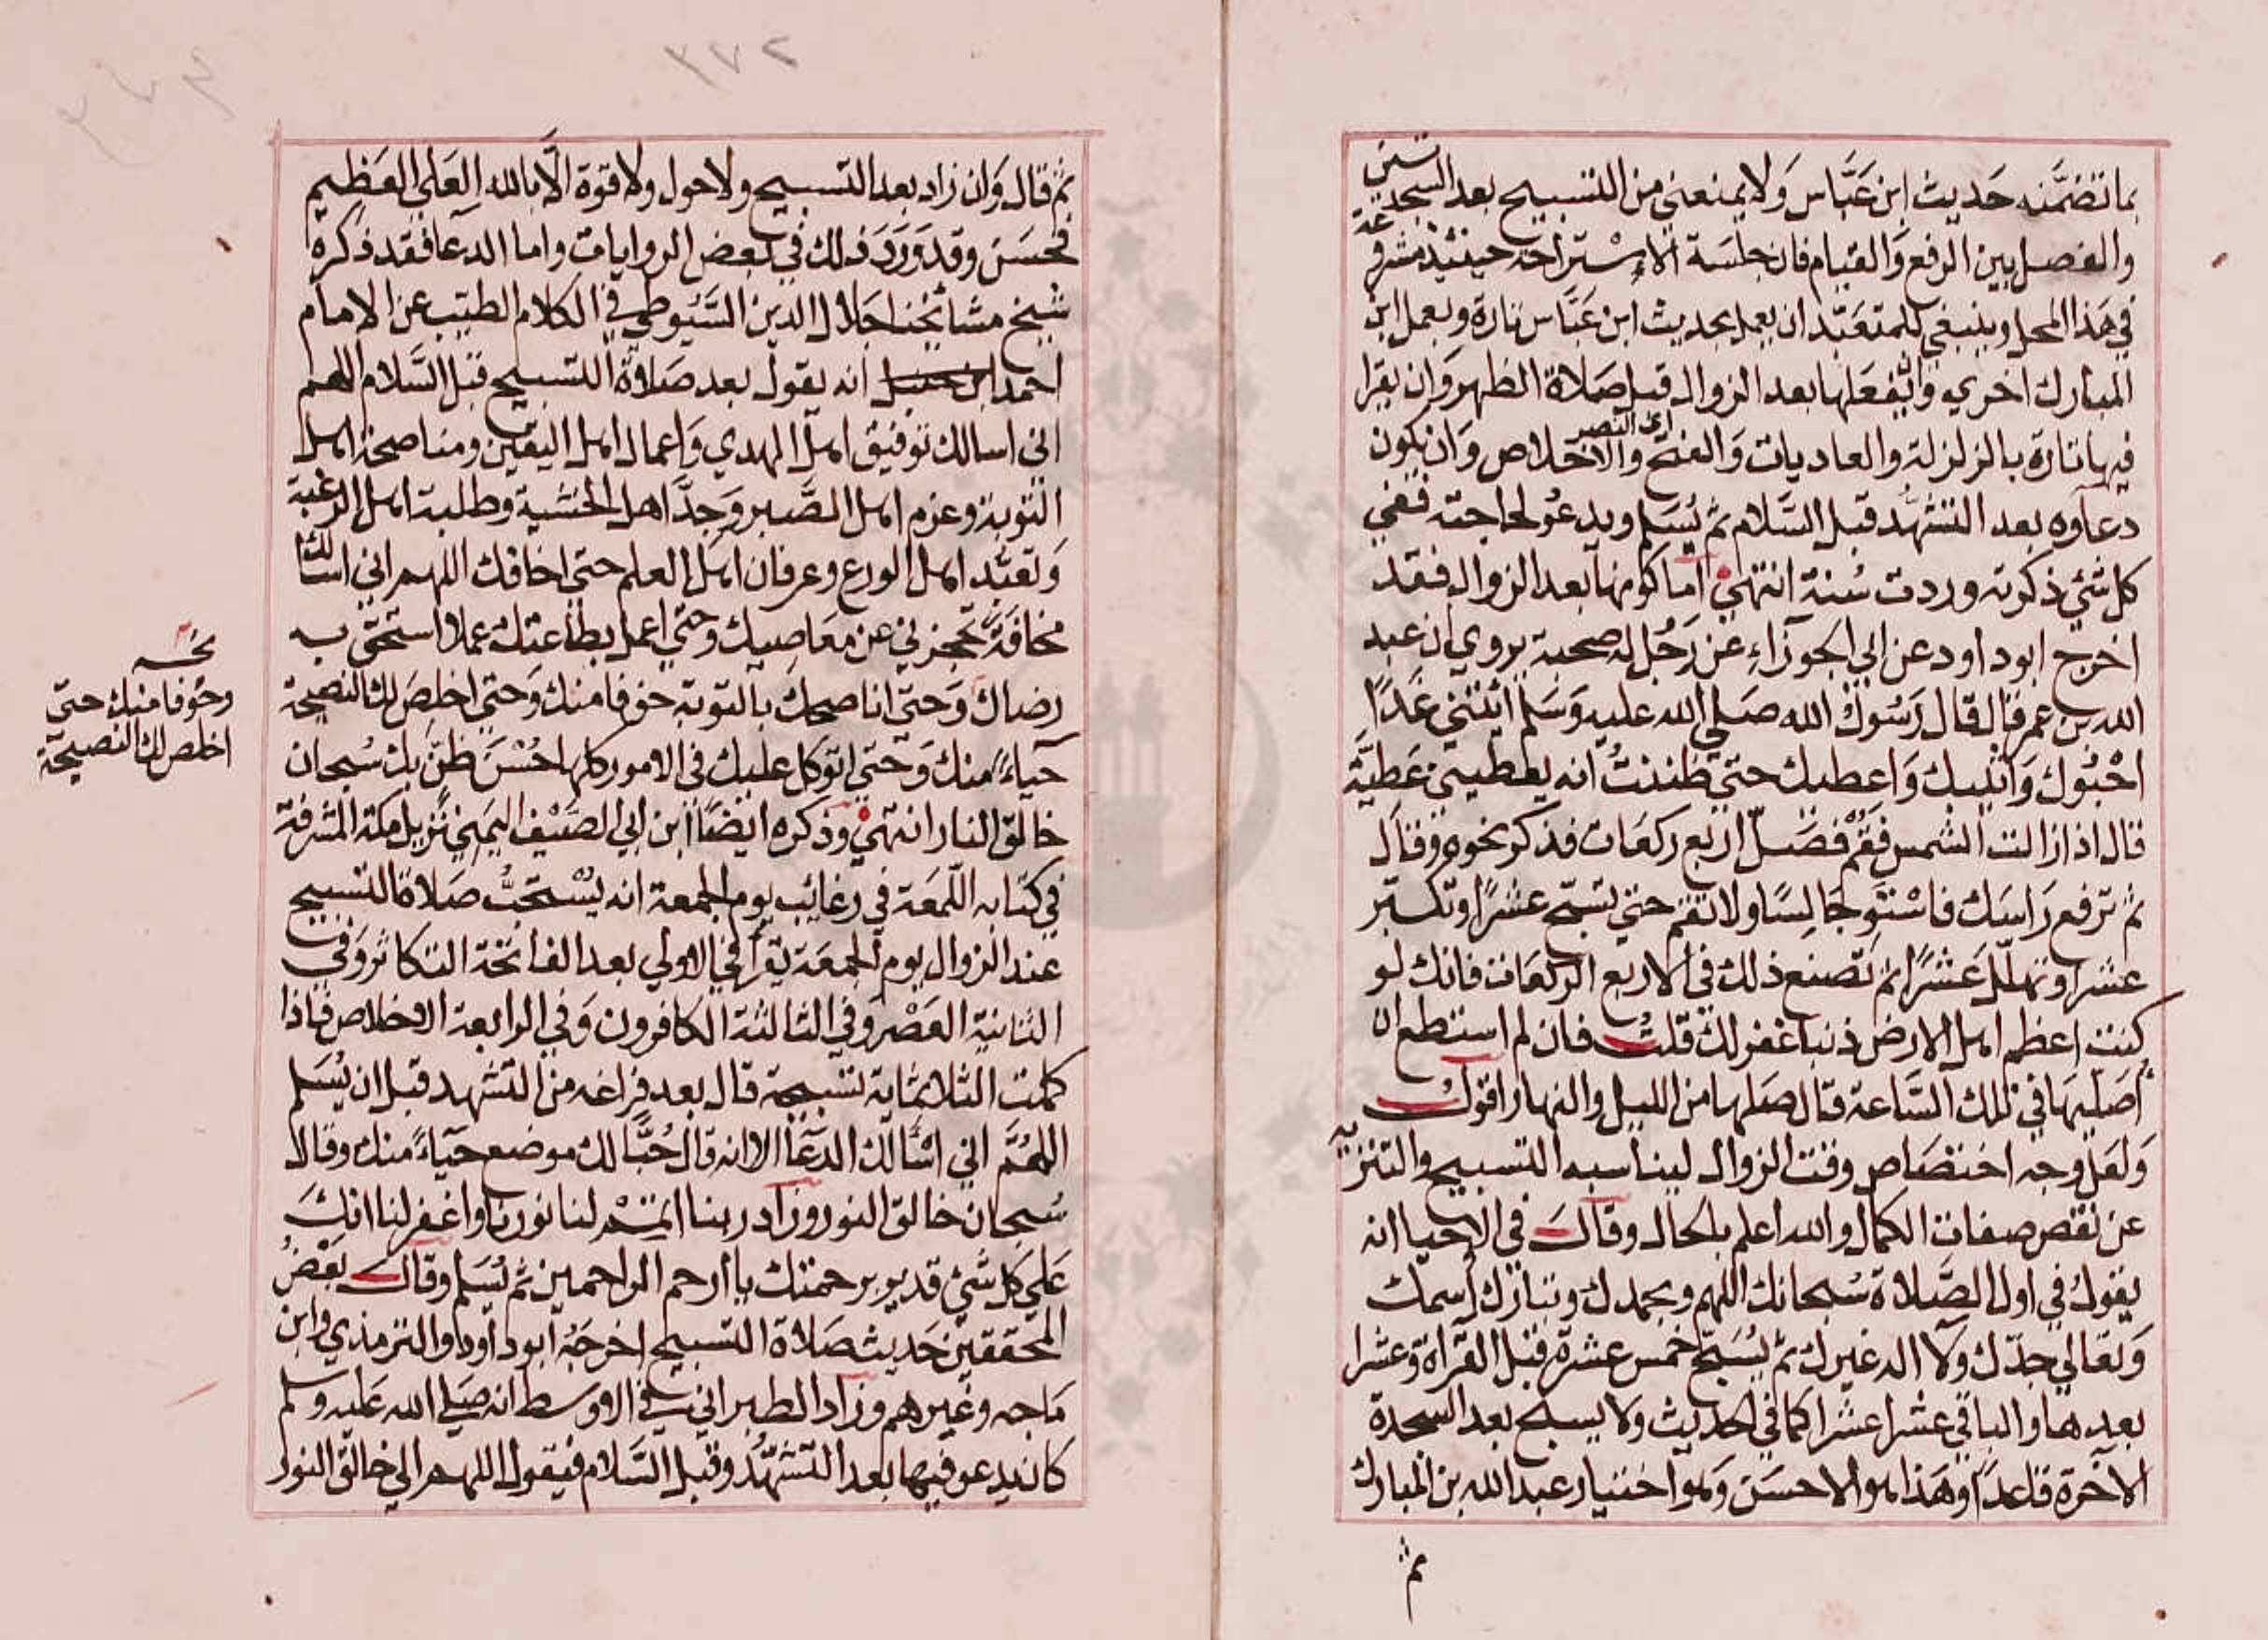 بما تضمَّنه حَديث ابن عَبَّاس وَلا يمنعني من التسبيح بعد السجدتين
والفصل بين الرفع وَالقيام فان جلسَة الاِسْتراحة حينئذ مشروعة
في هَذا المحل وينبغي للمتعَبّد ان يعمل بحديث ابن عَبَّاس تارة ويعمل ابن
المبارك اخري وَان يفعَلها بعد الزوال قبل صَلاة الظهر وَان يقرا
فيها تارة بالزلزلة والعاديات وَالفتح والاخلاص وَان يكون
اي النصر
دعاوه بعد التشهُّد قبل السَّلام ثم يُسَلم ويدعُو لحاجته ففي
كل شئ ذكرته وردت سُنة انتهي اما كونها بعد الزوال فقد
اخرج ابو داود عن ابي الجوزاءِ عن رَجُل له صحبة يروي ان عبد
الله بن عمر قال قال رَسُول الله صَلي الله عليه وَسَلم ائتني غدًا
احْبُوك وَاثيبك وَاعطيك حتي ظننتُ انه يعطيني عَطيَّة
قال اذا زالت الشمس فقُمْ فصَلّ اربع ركعات فذكر نحوه وقال
ثم ترفع رَاسَك فاسْتَو جَالِسًا ولا تقم حتي تسَبّح عشرًا وتكبّر
عشرا وتهلل عَشرًا ثم تصنع ذلك في الاربع الركعات فانك لو
كنت اعظم اهل الارض ذنبا غفر لك قلتُ فان لم استطع ان
اُصَليهَا في تلك السَّاعة قال صَلها من الليل والنهار اقول
وَلعَل وجه اختصَاص وقت الزوال ليناسبه التسبيح والتنزيه
عن نقص صفات الكمال والله اعلم بالحال وقال في الاحيا انه
يقول في اول الصَّلاة سُبحانك اللهم وبحمدك وتبارك اسمك
وَتعَالي جدّك وَلا اله غيرك ثم يُسَبّح خمس عشرة قبل القراة وعشرا
بعدها والباقي عشرا عشرا كما في الحديث ولا يسبح بعد السجدة
الاخرة قاعدًا وهَذا هو الاحسَن وَهو اختيار عبد الله بن المبارك
ثم
٣٧٢
ثم قال وَان زاد بعد التسبيح ولا حول ولا قوة الَّا بالله العَلي العَظيم
فحسَن وقد وَرَدَ ذلك في بعض الروايات واما الدعا فقد ذكرهُ
شيخ مشائخنا جَلال الدين السَّيوطي في الكلام الطيب عن الامام
احمد ابن حنبل انه يقول بعد صَلاة التسبيح قبل السَّلام اللهم
اني اسالك توفيق اهل الهدي وَاعمال اهل اليقين ومناصحة اهل
التوبة وعزم اهل الصَّبر وَجدَّ اهل الخشية وطلبة اهل الرغبة
وَتعَبّد اهل الورع وعرفان اهل العلم حتي اخافك اللهم اني اسالك
مخافةً تحجزني عن معَاصيك وَحتي اعمل بطاعتك عملا استحق به
رضاك وَحتي اناصحك بالتوبة خوفا منك وَحتي اخلصَ لك النصيحة
حياءً منك وَحتي اتوكل عليك في الامور كلها حُسْنَ ظن بك سُبحان
خالق النار انتهي وذكره ايضًا ابن ابي الصَّيْف اليمَني نزيل مكة المشرفة
في كتابه اللّمعَة في رغائب يوم الجمعة انه يُسْتحَبُّ صَلاة التسبيح
عند الزوال يوم الجمعَة يقرأ في الاولي بعد الفاتحة التكاثر وَفي
الثانية العَصْر وفي الثالثة الكافرون وَفي الرابعة الاخلاص فاذا
كملت الثلاثماية تسبيحة قال بعد فراغه من التشهد قبل ان يُسَلم
اللهُمَّ اني اسْالك الدعَا الا انه قال حُبًّا لك موضع حيَاءً منك وقال
سُبحان خالق النور وزاد ربنا اتمم لنا نورنا واغفر لنا انك
عَلي كل شئ قدير برحمتك يا ارحم الراحمين ثم يُسَلم وقال بَعْضُ
المحققين حَديث صَلاة التسبيح اخرجَهُ ابو داود والترمذي وابن
مَاجه وغيرهم وزاد الطبراني في الاوسط انه صَلي الله عَليه وسَلم
كان يدعو فيها بعد التشهُّد وقبل السَّلام فيقول اللهم الي خالق النور
نخـــه
وخوفا منك حتي
اخلص لك النصيحة